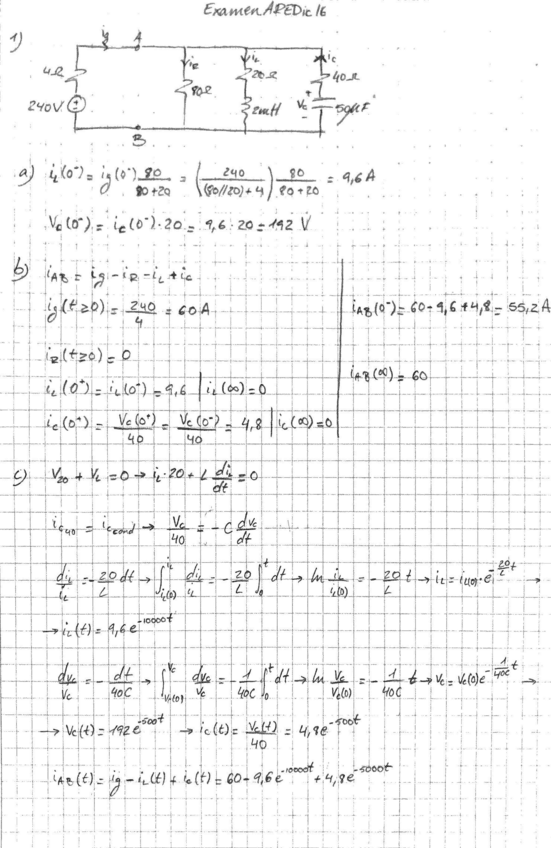 Examen APEDic 16
1)
ig A iR iL iC
4Ω 80Ω 20Ω 40Ω
240V 2mH Vc + - 50μF
B
a) iL(0⁻) = ig(0⁻) 80/(80+20) = (240/((80//20)+4)) 80/(80+20) = 9,6 A
Vc(0⁻) = ic(0⁻)·20 = 9,6·20 = 192 V
b) iAB = ig - iR - iL + ic
ig(t≥0) = 240/4 = 60A
iAB(0⁻) = 60 - 9,6 + 4,8 = 55,2 A
iR(t≥0) = 0
iAB(∞) = 60
iL(0⁺) = iL(0⁻) = 9,6 | iL(∞) = 0
ic(0⁺) = Vc(0⁺)/40 = Vc(0⁻)/40 = 4,8 | ic(∞) = 0
c) V20 + VL = 0 → iL·20 + L diL/dt = 0
ic40 = iccond → Vc/40 = -C dvc/dt
diL/iL = -20/L dt → ∫iL(0)^iL diL/iL = -20/L ∫0^t dt → ln iL/iL(0) = -20/L t → iL = iL(0)·e^(-20/L t) →
→ iL(t) = 9,6 e^(-10000t)
dvc/vc = -dt/40C → ∫Vc(0)^Vc dvc/vc = -1/40C ∫0^t dt → ln Vc/Vc(0) = -1/40C t → Vc = Vc(0) e^(-1/40C t) →
→ Vc(t) = 192 e^(-500t) → ic(t) = Vc(t)/40 = 4,8 e^(-500t)
iAB(t) = ig - iL(t) + ic(t) = 60 - 9,6 e^(-10000t) + 4,8 e^(-5000t)